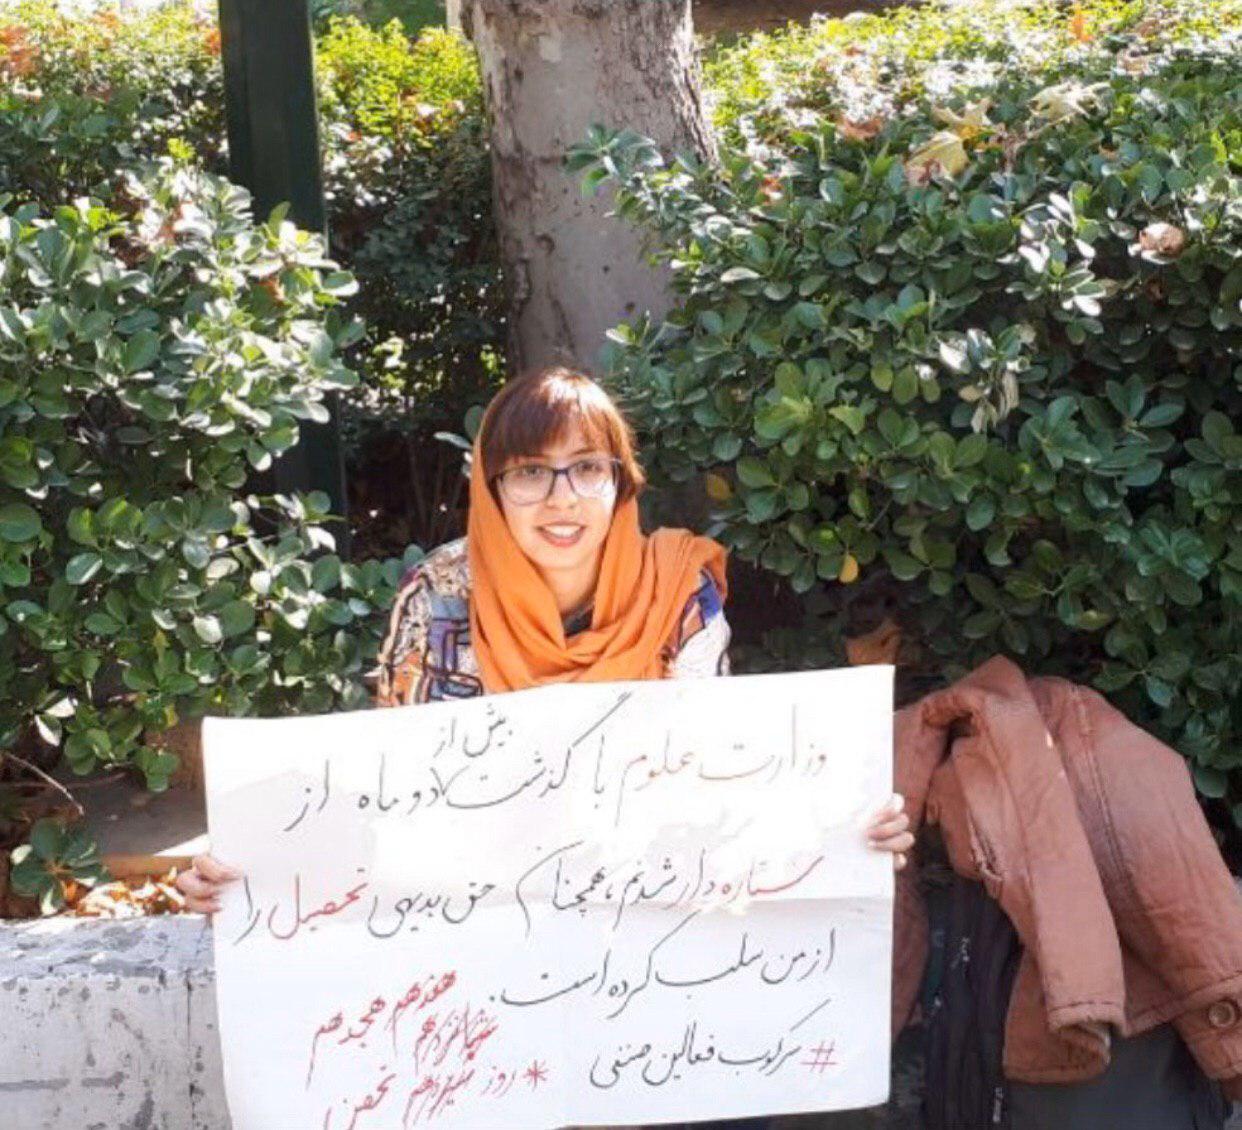 بیش از
وزارت علوم با گذشت دو ماه از
ستاره‌دار شدنم، همچنان حق بدیهی تحصیل را
از من سلب کرده است.
هفدهم هجدهم
شانزدهم
#سرکوب فعالین صنفی * روز تحصن